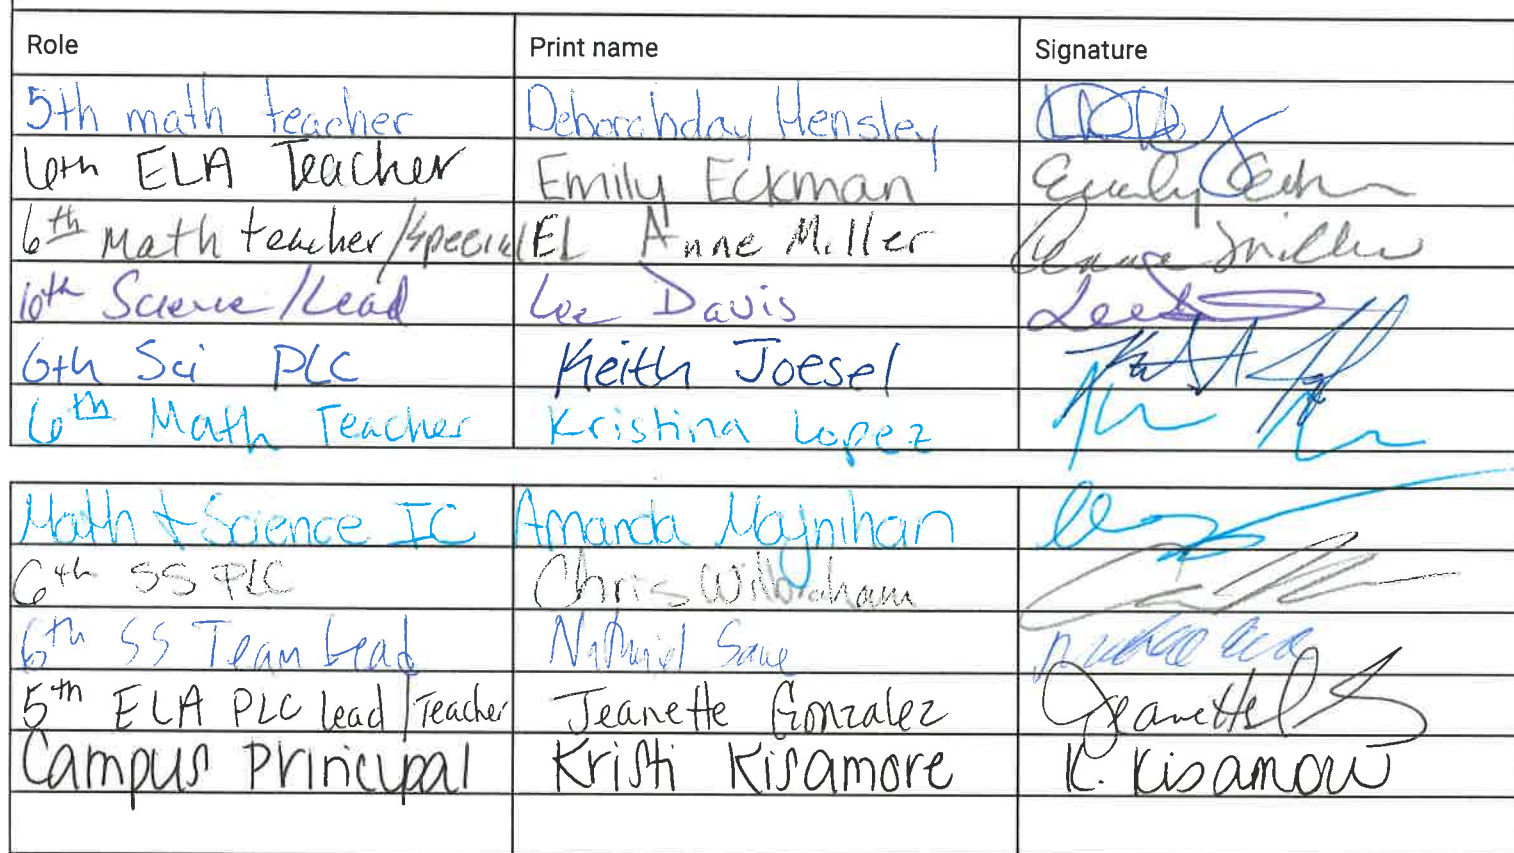 Role Print name Signature
5th math teacher Deborahday Hensley
6th ELA Teacher Emily Eckman Emily
6th Math teacher/Special EL Anne Miller Anne Miller
6th Science/Lead Lee Davis Lee
6th Sci PLC Keith Joesel
6th Math Teacher Kristina Lopez
Math + Science IC Amanda Moynihan
6th SS PLC Chris Wilbraham
6th SS Team Lead
5th ELA PLC lead/Teacher Jeanette Gonzalez Jeanette
Campus Principal Kristi Kisamore K. Kisamore